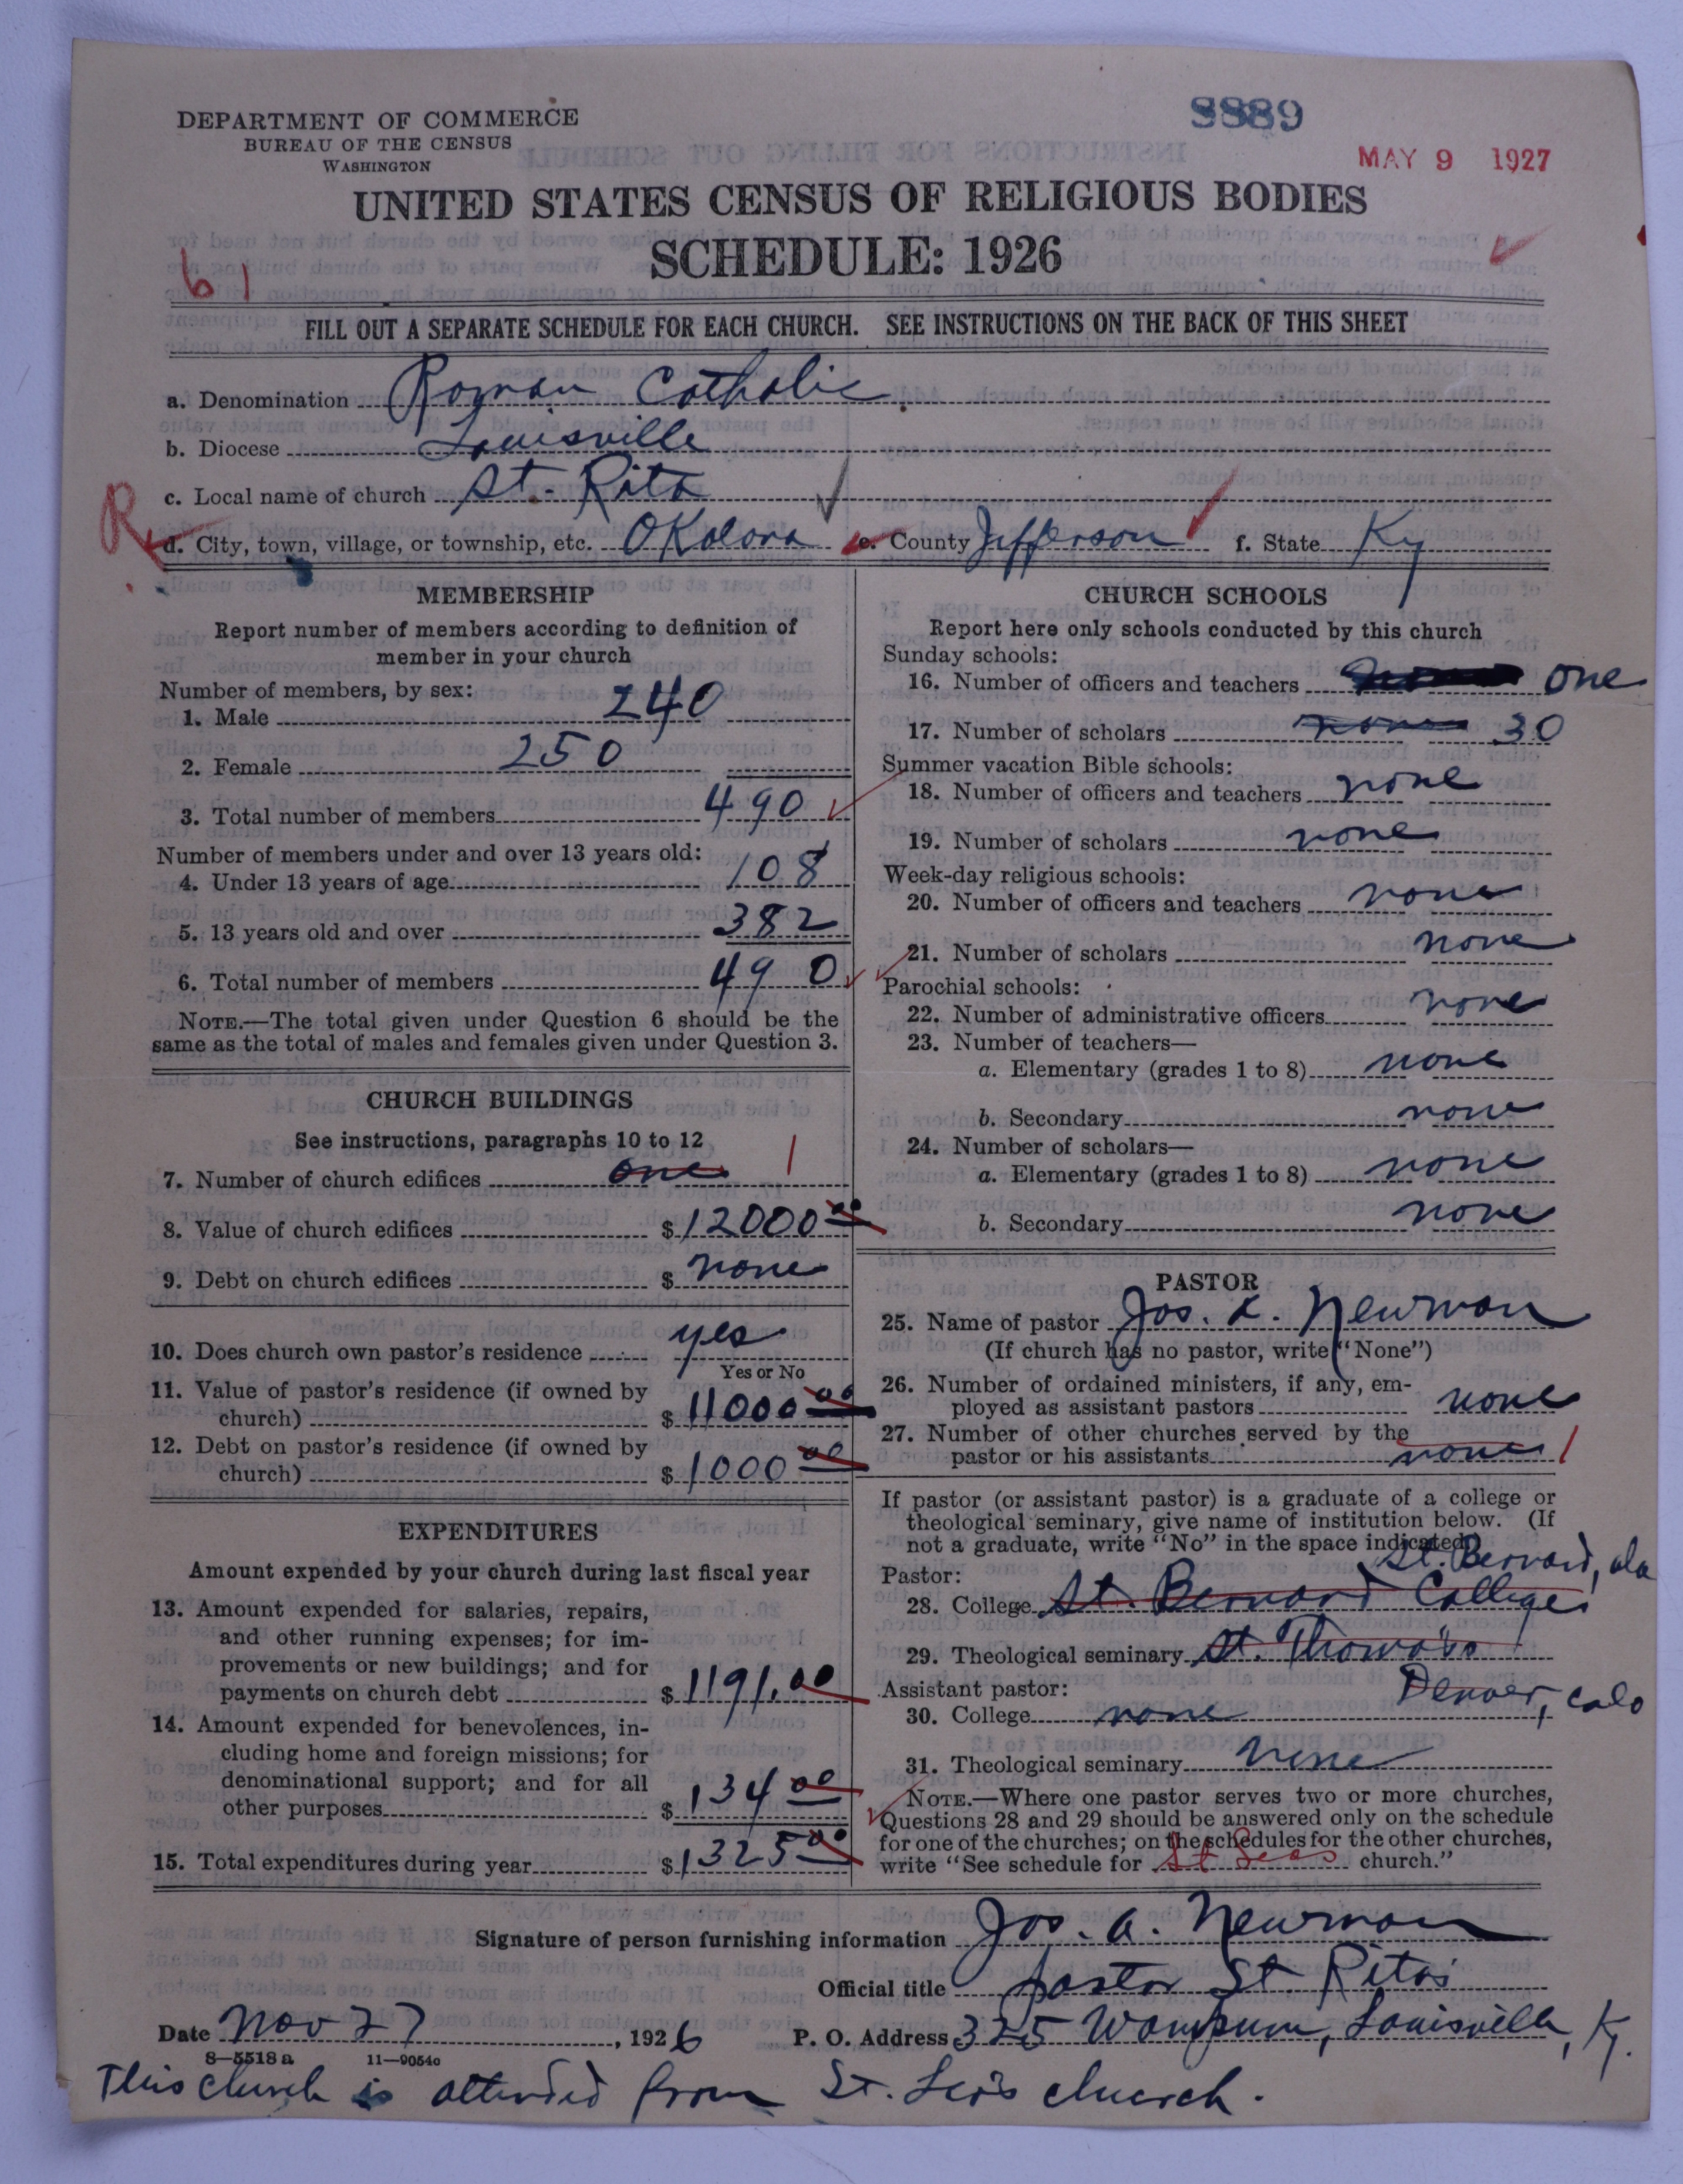 DEPARTMENT OF COMMERCE
BUREAU OF THE CENSUS
WASHINGTON
8889
MAY 9 1927
UNITED STATES CENSUS OF RELIGIOUS BODIES
SCHEDULE: 1926
61
FILL OUT A SEPARATE SCHEDULE FOR EACH CHURCH. SEE INSTRUCTIONS ON THE BACK OF THIS SHEET
a. Denomination Roman Catholic
b. Diocese Louisville
c. Local name of church St. Rita
R
d. City, town, village, or township, etc. OKolona e. County Jefferson f. State Ky
MEMBERSHIP
Report number of members according to definition of
member in your church
Number of members, by sex:
1. Male 240
2. Female 250
3. Total number of members 490
Number of members under and over 13 years old:
4. Under 13 years of age 108
5. 13 years old and over 382
6. Total number of members 490
NOTE.—The total given under Question 6 should be the
same as the total of males and females given under Question 3.
CHURCH BUILDINGS
See instructions, paragraphs 10 to 12
7. Number of church edifices one 1
8. Value of church edifices $ 12000 00
9. Debt on church edifices $ none
10. Does church own pastor's residence yes
Yes or No
11. Value of pastor's residence (if owned by
church) $ 11000 00
12. Debt on pastor's residence (if owned by
church) $ 1000 00
EXPENDITURES
Amount expended by your church during last fiscal year
13. Amount expended for salaries, repairs,
and other running expenses; for im-
provements or new buildings; and for
payments on church debt $ 1191.00
14. Amount expended for benevolences, in-
cluding home and foreign missions; for
denominational support; and for all
other purposes $ 134 00
15. Total expenditures during year $ 1325 00
CHURCH SCHOOLS
Report here only schools conducted by this church
Sunday schools:
16. Number of officers and teachers none one
17. Number of scholars none 30
Summer vacation Bible schools:
18. Number of officers and teachers none
19. Number of scholars none
Week-day religious schools:
20. Number of officers and teachers none
21. Number of scholars none
Parochial schools:
22. Number of administrative officers none
23. Number of teachers—
a. Elementary (grades 1 to 8) none
b. Secondary none
24. Number of scholars—
a. Elementary (grades 1 to 8) none
b. Secondary none
PASTOR
25. Name of pastor Jos. A. Newman
(If church has no pastor, write "None")
26. Number of ordained ministers, if any, em-
ployed as assistant pastors none
27. Number of other churches served by the
pastor or his assistants none 1
If pastor (or assistant pastor) is a graduate of a college or
theological seminary, give name of institution below. (If
not a graduate, write "No" in the space indicated)
St. Bernard, ala
Pastor:
28. College St. Bernard College
29. Theological seminary St. Thomas
Denver, Colo
Assistant pastor:
30. College none
31. Theological seminary none
NOTE.—Where one pastor serves two or more churches,
Questions 28 and 29 should be answered only on the schedule
for one of the churches; on the schedules for the other churches,
write "See schedule for St Leos church."
Signature of person furnishing information Jos. A. Newman
Official title pastor St. Rita's
Date Nov 27, 1926 P. O. Address 325 Wampum, Louisville, Ky.
8—5518 a 11—9054a
This church is attended from St. Leo's church.